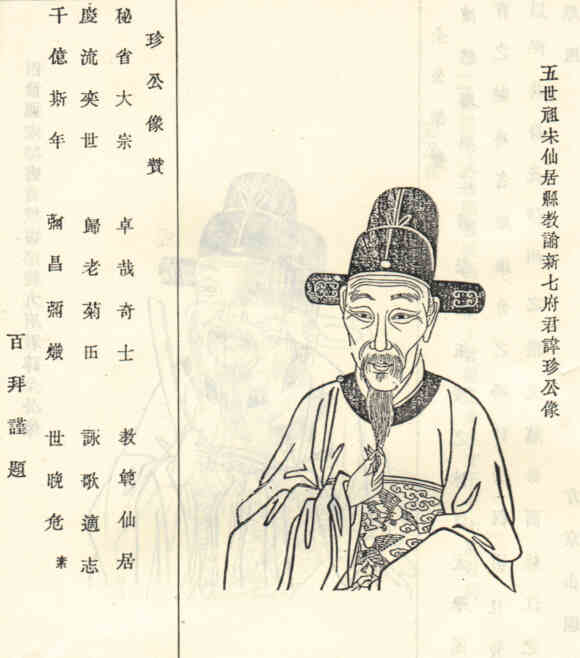 五世祖宋仙居縣教諭新七府君諱珍公像
珍公像贊
秘省大宗 卓哉奇士 教範仙居
慶流奕世 歸老菊田 詠歌適志
千億斯年 彌昌彌熾 世晚危素
百拜謹題